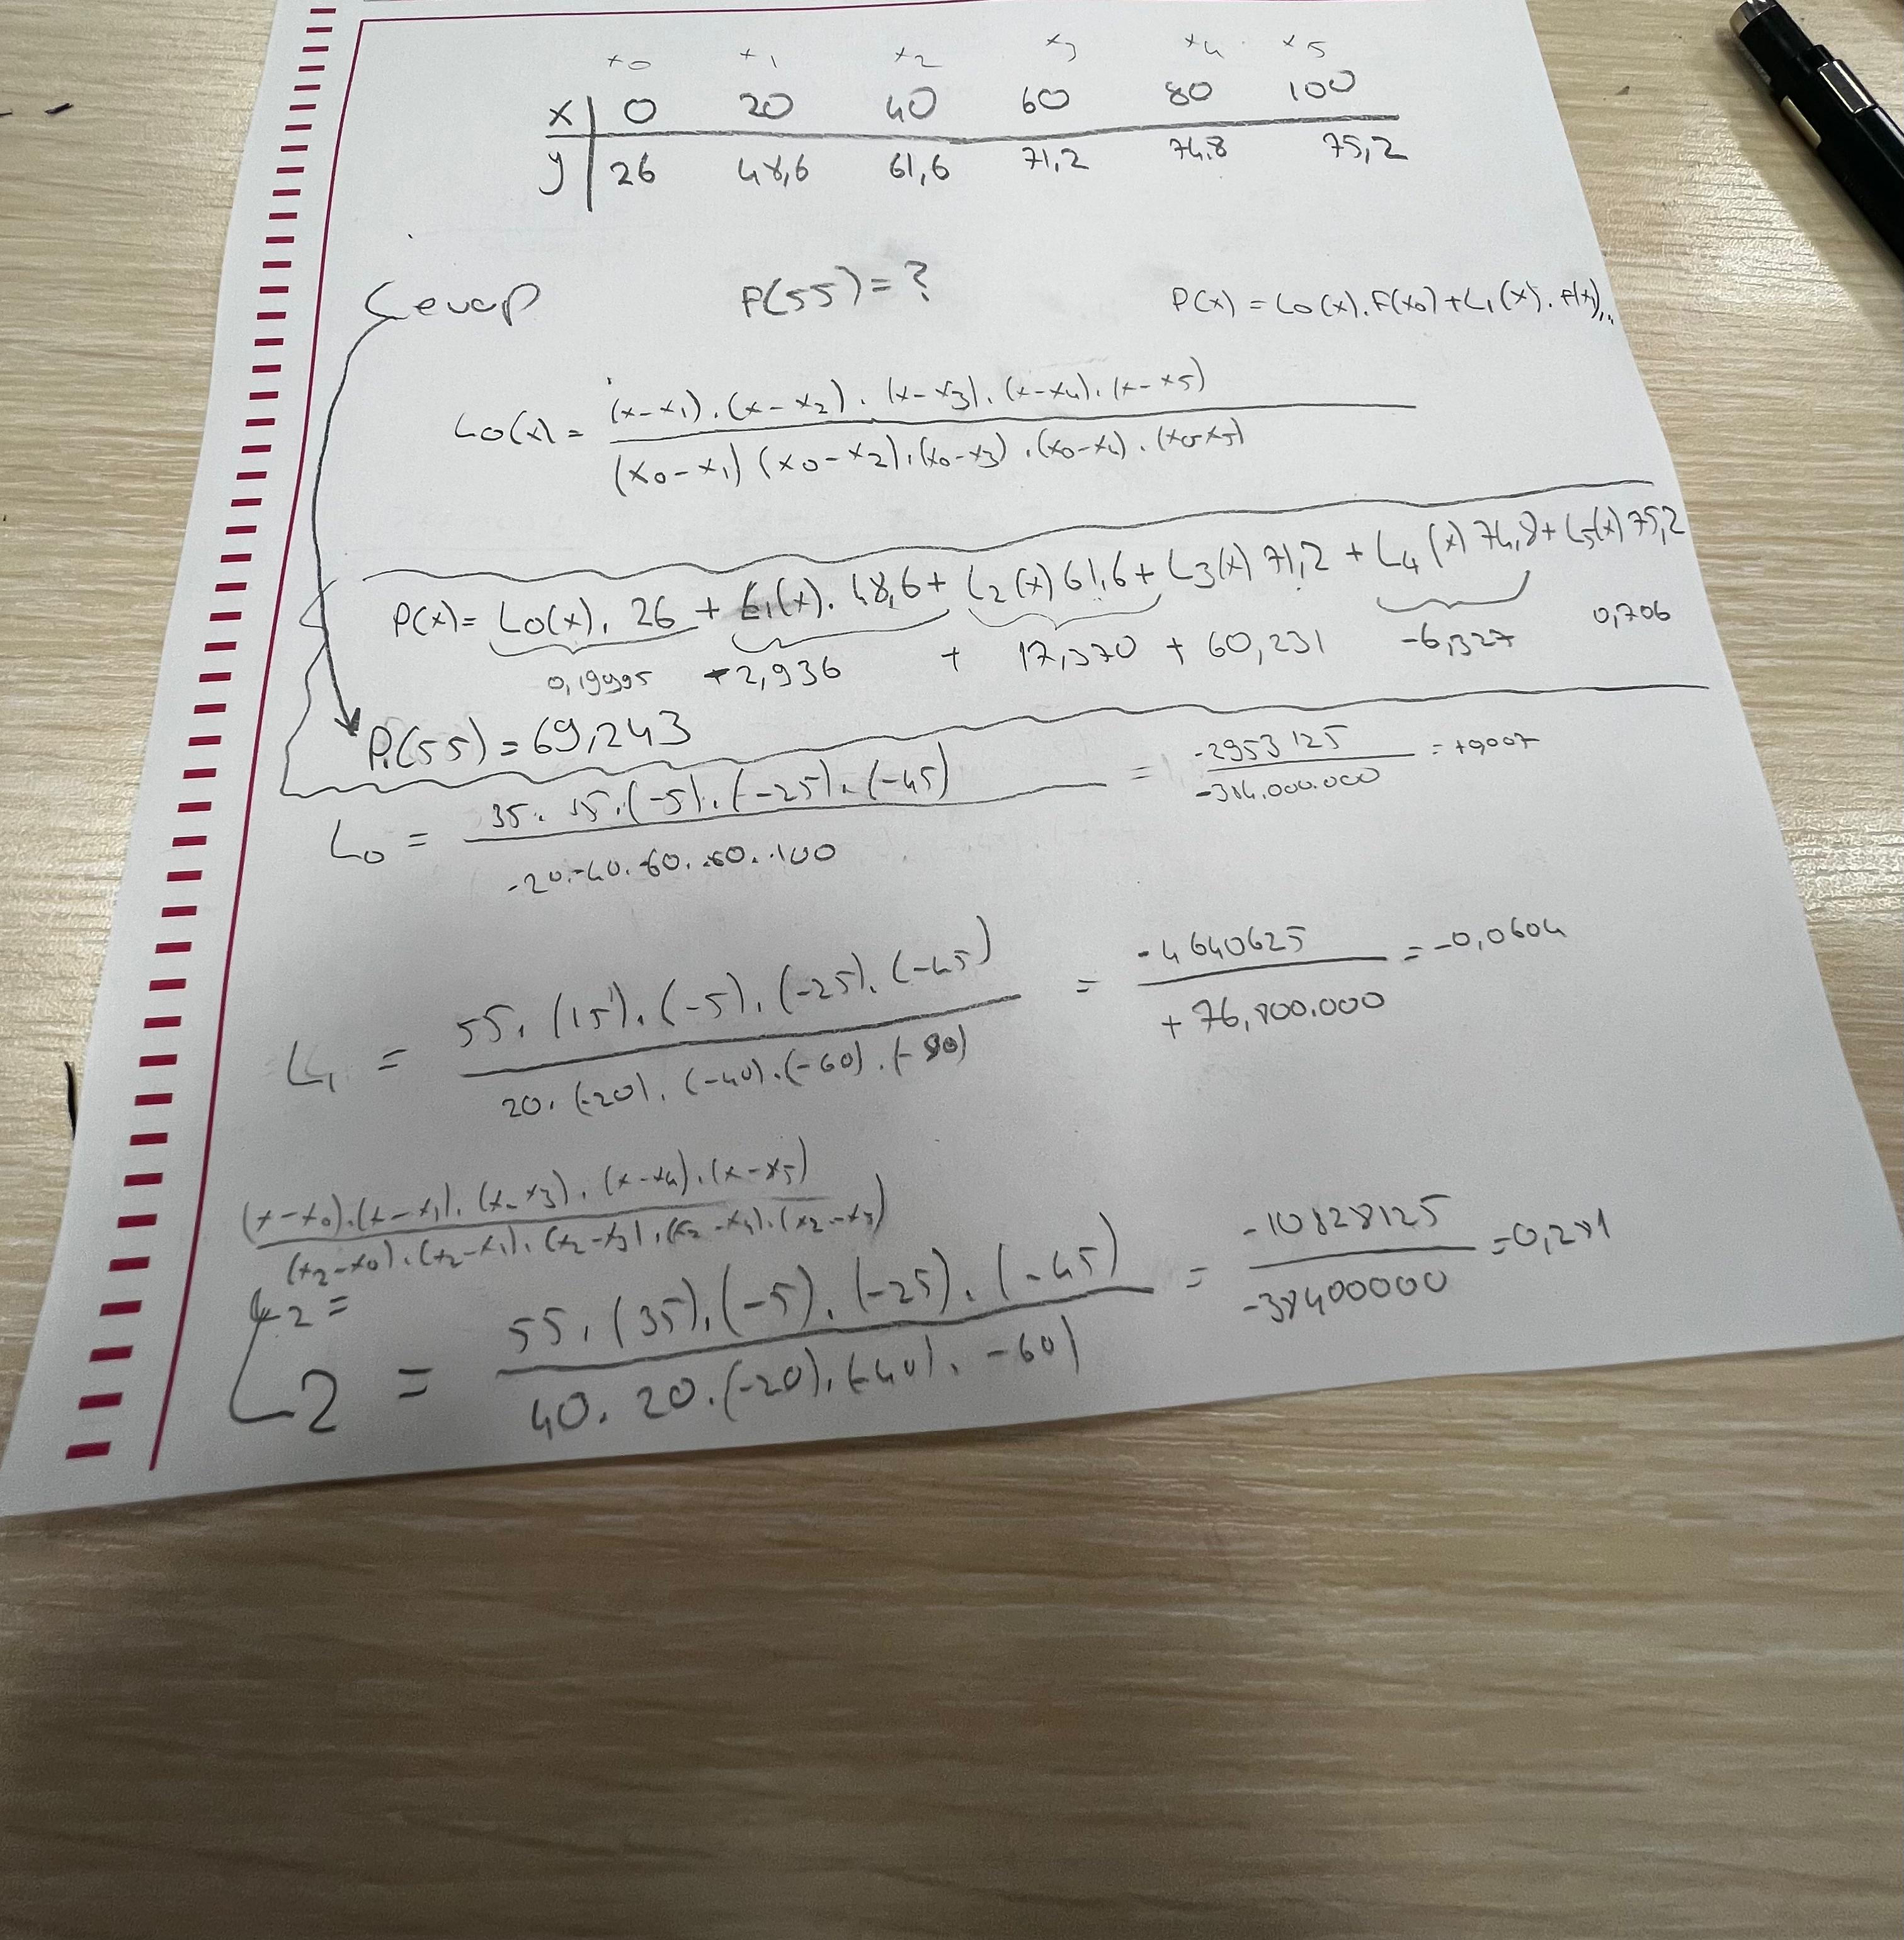 x0 x1 x2 x3 x4 x5
x | 0 20 40 60 80 100
y | 26 48,6 61,6 71,2 74,8 75,2
Cevap P(55) = ? P(x) = L0(x).F(x0)+L1(x).F(x1)...
L0(x) = (x-x1).(x-x2).(x-x3).(x-x4).(x-x5)
(x0-x1)(x0-x2).(x0-x3).(x0-x4).(x0-x5)
P(x) = L0(x).26 + L1(x).48,6 + L2(x)61,6 + L3(x)71,2 + L4(x)74,8 + L5(x)75,2
0,19995 -2,936 + 17,370 + 60,231 -6,327 0,706
P(55) = 69,243
L0 = 35.15.(-5).(-25).(-45) = -2953125 = +0,007
-20.-40.-60.-80.-100 -384.000.000
L1 = 55.(15).(-5).(-25).(-45) = -4640625 = -0,0604
20.(-20).(-40).(-60).(-80) +76,800.000
(x-x0).(x-x1).(x-x3).(x-x4).(x-x5)
(x2-x0).(x2-x1).(x2-x3).(x2-x4).(x2-x5)
L2 =
L2 = 55.(35).(-5).(-25).(-45) = -10828125 = 0,281
40.20.(-20).(-40).-60) -38400000